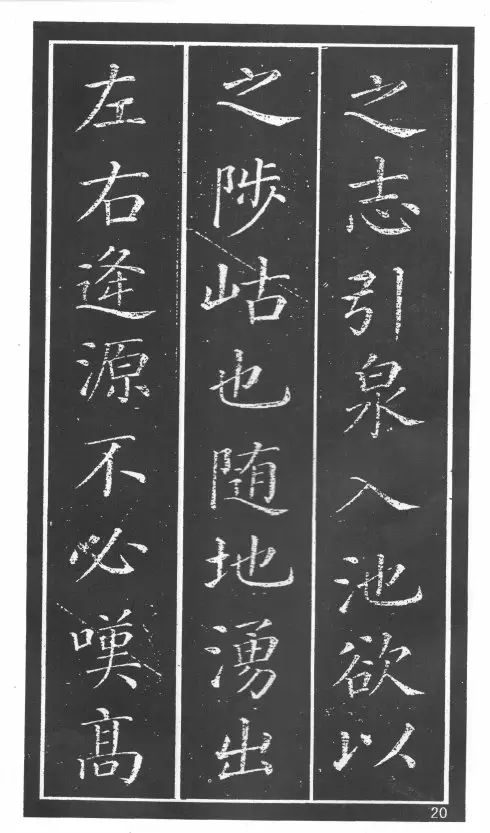 之志引泉入池欲以
之陟岵也随地湧出
左右逢源不必嘆髙
20